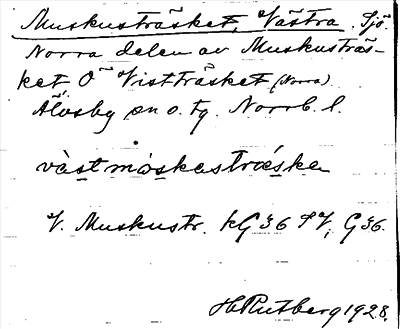 Muskusträsket, Västra. Sjö.
Norra delen av Muskusträs-
ket, Ö Vistträsket (Norra).
Älvsby sn o. tg. Norrb. l.
västmoskastræske
V. Muskustr. kG36 SV, G36.
H Rutberg 1928.